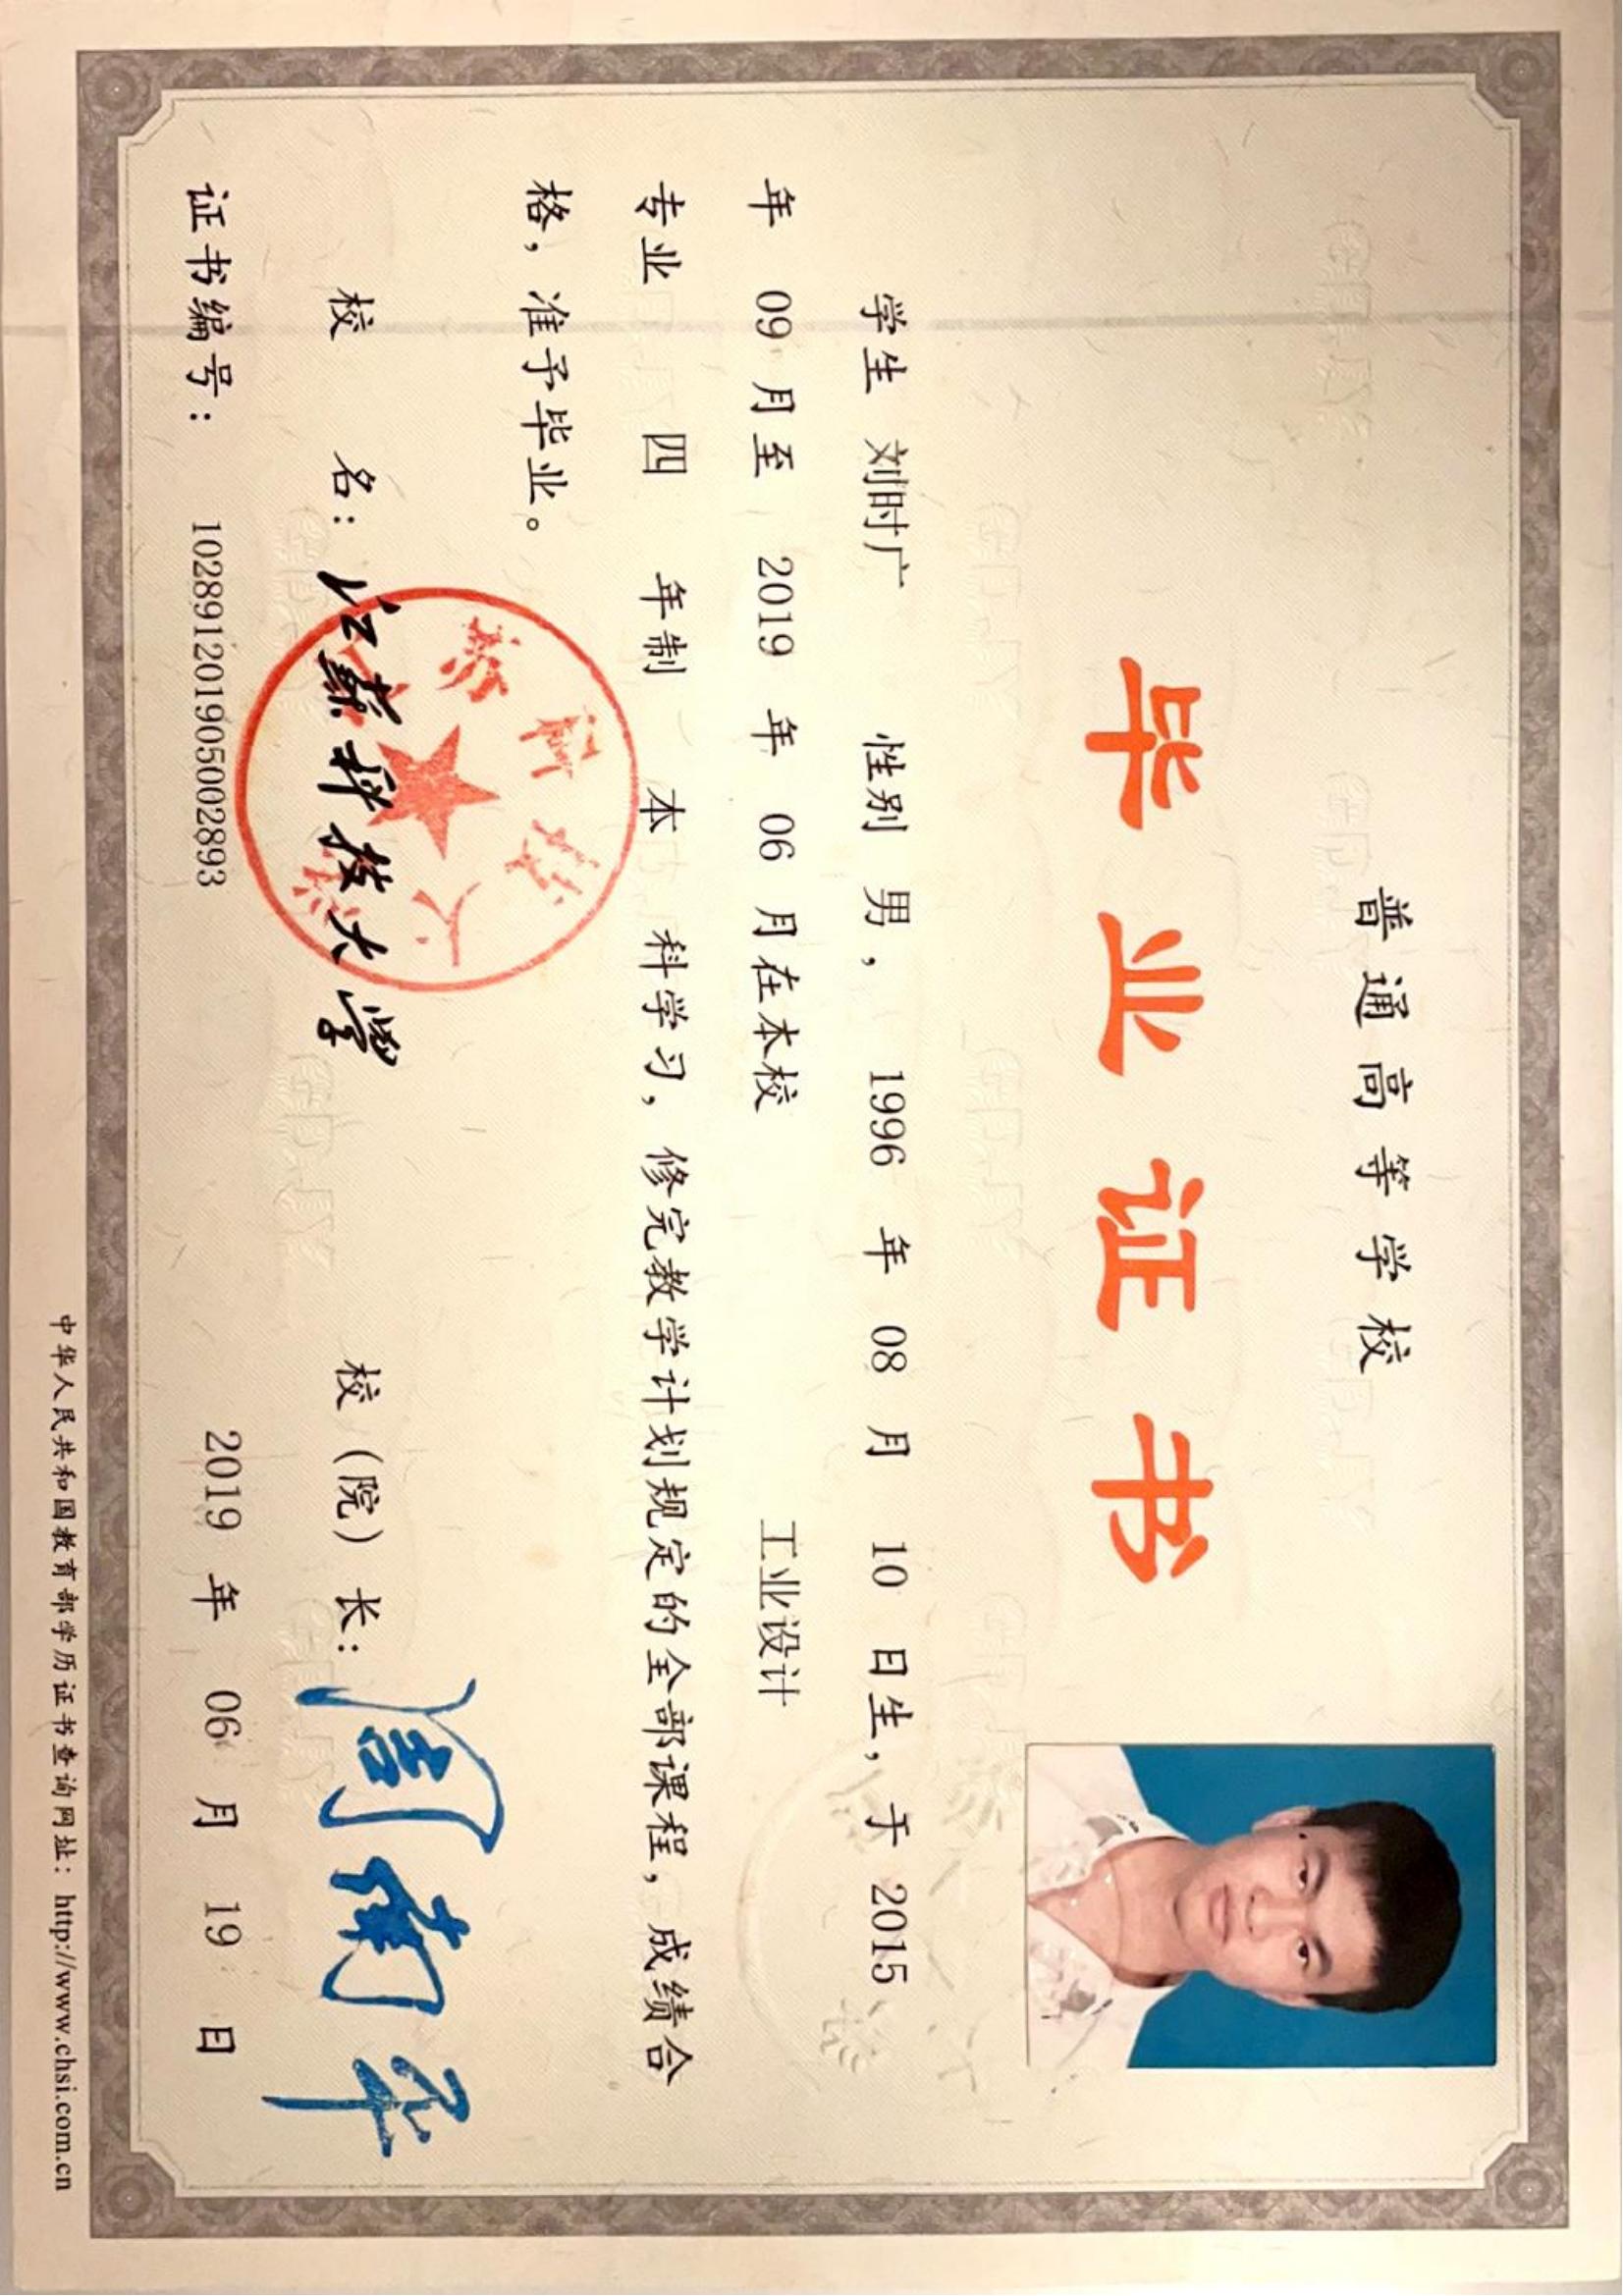 普通高等学校
毕业证书
学生 刘时广 性别 男， 1996 年 08 月 10 日生，于 2015
年 09 月至 2019 年 06 月在本校 工业设计
专业 四 年制 本 科学习，修完教学计划规定的全部课程，成绩合
格，准予毕业。
校 名：江苏科技大学 校（院）长：周南平
证书编号： 102891201905002893 2019 年 06 月 19 日
中华人民共和国教育部学历证书查询网址：http://www.chsi.com.cn
江苏科技大学